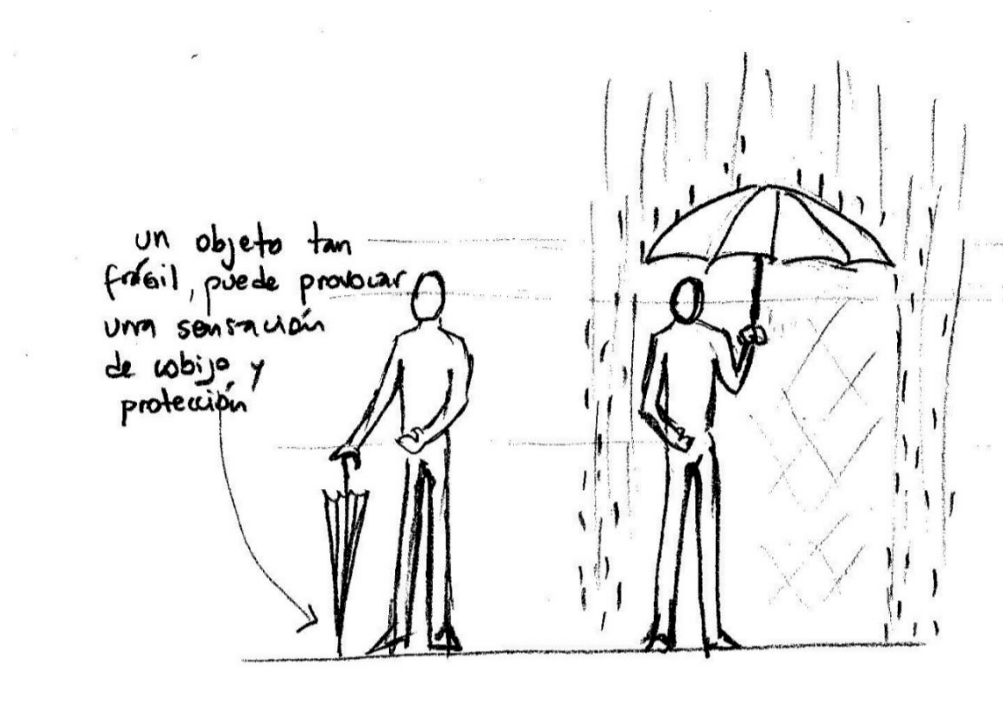 un objeto tan
frágil, puede provocar
una sensación
de cobijo y
protección